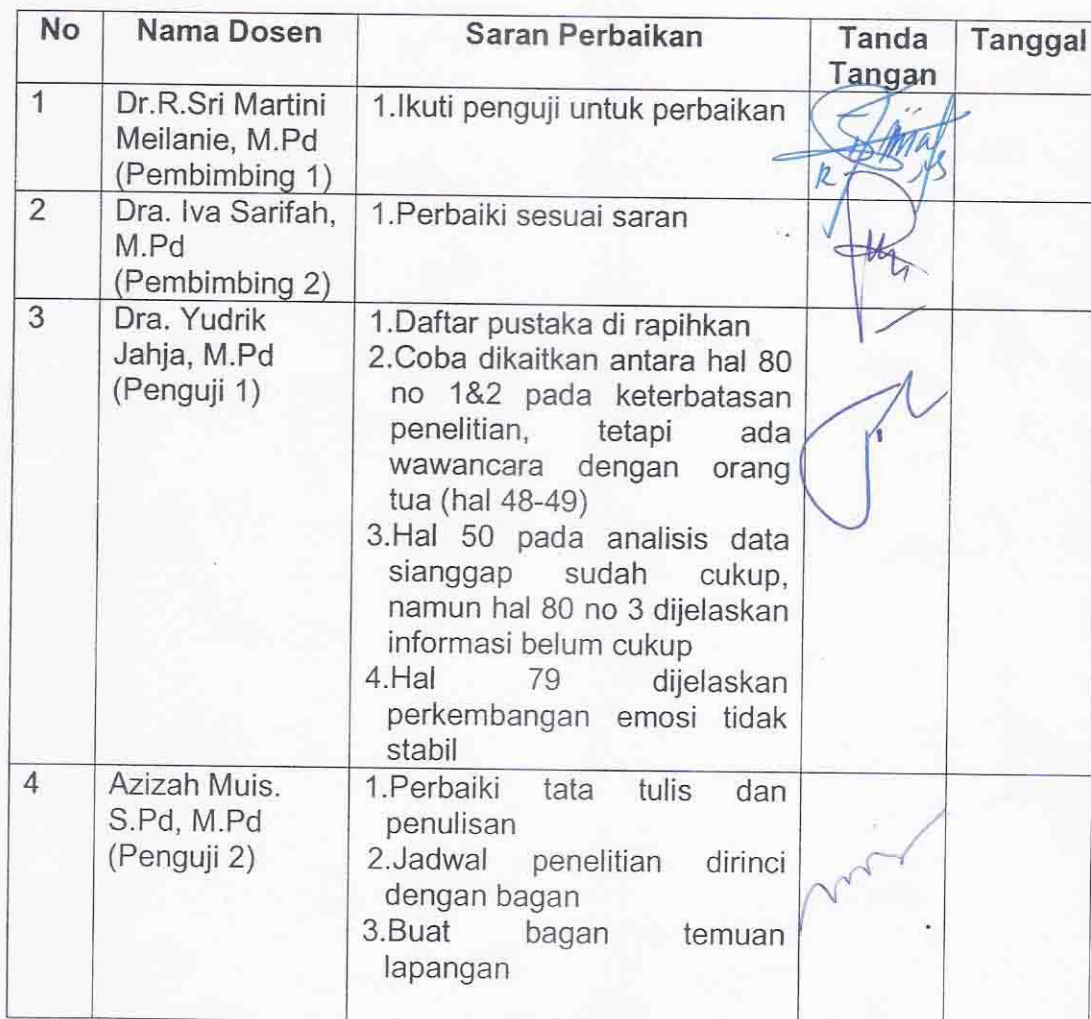 No Nama Dosen Saran Perbaikan Tanda Tangan Tanggal
1 Dr.R.Sri Martini
Meilanie, M.Pd
(Pembimbing 1)
1.Ikuti penguji untuk perbaikan
2 Dra. Iva Sarifah,
M.Pd
(Pembimbing 2)
1.Perbaiki sesuai saran
3 Dra. Yudrik
Jahja, M.Pd
(Penguji 1)
1.Daftar pustaka di rapihkan
2.Coba dikaitkan antara hal 80
no 1&2 pada keterbatasan
penelitian, tetapi ada
wawancara dengan orang
tua (hal 48-49)
3.Hal 50 pada analisis data
sianggap sudah cukup,
namun hal 80 no 3 dijelaskan
informasi belum cukup
4.Hal 79 dijelaskan
perkembangan emosi tidak
stabil
4 Azizah Muis.
S.Pd, M.Pd
(Penguji 2)
1.Perbaiki tata tulis dan
penulisan
2.Jadwal penelitian dirinci
dengan bagan
3.Buat bagan temuan
lapangan